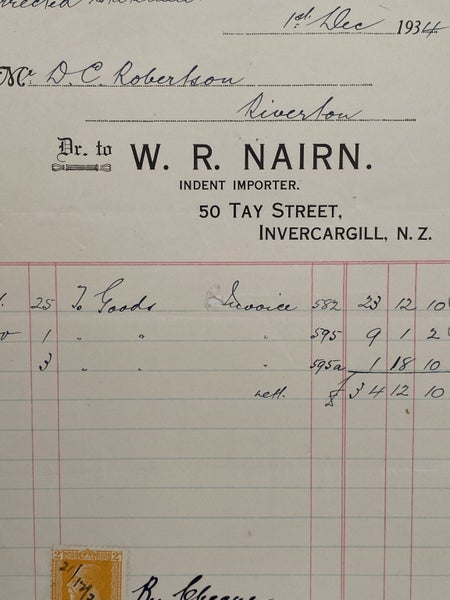 1st Dec 1934
Mr. D. C. Robertson
Riverton
Dr. to W. R. NAIRN.
INDENT IMPORTER.
50 TAY STREET,
INVERCARGILL, N. Z.
25 To Goods Invoice 582 23 12 10
1 " " " 595 9 1 2
3 " " " 595a 1 18 10
nett. £ 34 12 10
2d 2d
21/12/3
By Cheque